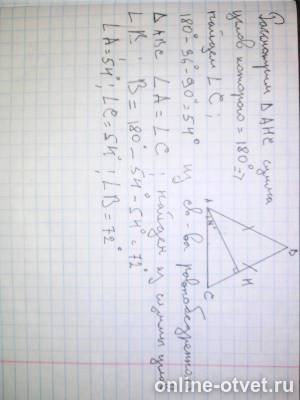 Рассмотрим ΔАНС сумма
углов которого = 180° =>
найдем ∠C;
180°-36-90=54° из св-вы равнобедренно
ΔABC ∠A=∠C; найдем из суммы угло
∠B. B=180°-54-54°=72°
∠A=54°; ∠C=54°; ∠B=72°
A
B
C
H
online-otvet.ru